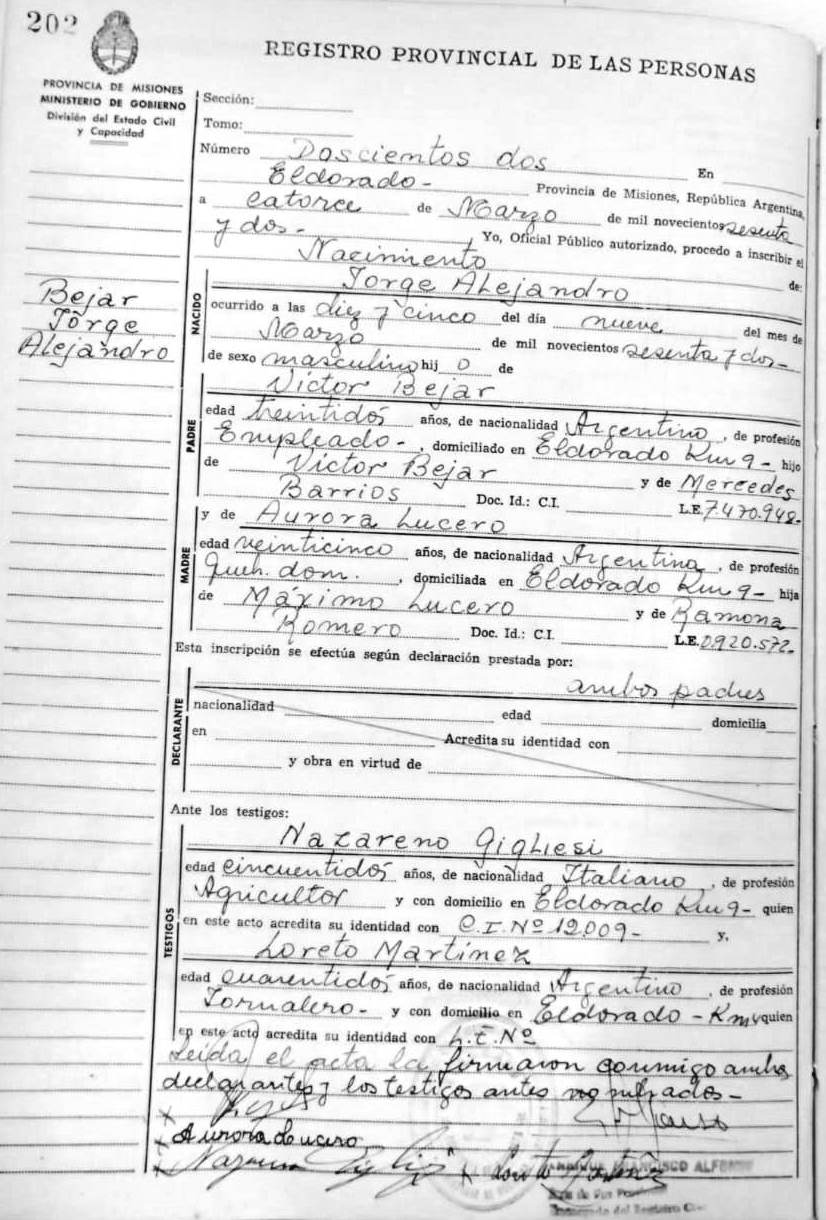 202
REGISTRO PROVINCIAL DE LAS PERSONAS
PROVINCIA DE MISIONES
MINISTERIO DE GOBIERNO
División del Estado Civil
y Capacidad
Sección:
Tomo:
Número Doscientos dos En
Eldorado - Provincia de Misiones, República Argentina,
a catorce de Marzo de mil novecientos sesenta
y dos - Yo, Oficial Público autorizado, procedo a inscribir el
Nacimiento de:
Bejar
Jorge
Alejandro
NACIDO
Jorge Alejandro
ocurrido a las diez y cinco del día nueve del mes de
Marzo de mil novecientos sesenta y dos -
de sexo masculino hij o de
Victor Bejar
PADRE
edad treintidós años, de nacionalidad Argentino, de profesión
Empleado -, domiciliado en Eldorado Km 9 - hijo
de Victor Bejar y de Mercedes
Barrios Doc. Id.: C.I. L.E. 7.470.948-
y de Aurora Lucero
MADRE
edad veinticinco años, de nacionalidad Argentina, de profesión
Queh. dom., domiciliada en Eldorado Km 9 - hija
de Máximo Lucero y de Ramona
Romero Doc. Id.: C.I. L.E. 0.920.572-
Esta inscripción se efectúa según declaración prestada por:
ambos padres
DECLARANTE
nacionalidad edad domicilia
en Acredita su identidad con
y obra en virtud de
Ante los testigos:
TESTIGOS
Nazareno Gigliesi
edad cincuentidós años, de nacionalidad Italiano, de profesión
Agricultor y con domicilio en Eldorado Km 9 - quien
en este acto acredita su identidad con C.I. Nº 12.009 - y,
Loreto Martinez
edad cuarentidós años, de nacionalidad Argentino, de profesión
Jornalero - y con domicilio en Eldorado - Km quien
en este acto acredita su identidad con L.E. Nº
Leída el acta la firmaron conmigo ambos
declarantes y los testigos antes nombrados -
Aurora Lucero
FRANCISCO ALFONSO
Jefe de
Encargado del Registro Civil